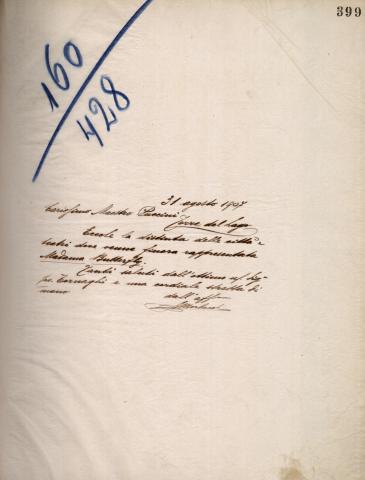 399
160
428
31 agosto 1907
Carissimo Maestro Puccini
Torre del Lago
Eccole la distinta delle città e
teatri dove venne finora rappresentata
Madama Butterfly
Tanti saluti dall'ottimo
Tornaghi e una cordiale stretta di
mano
dall'aff